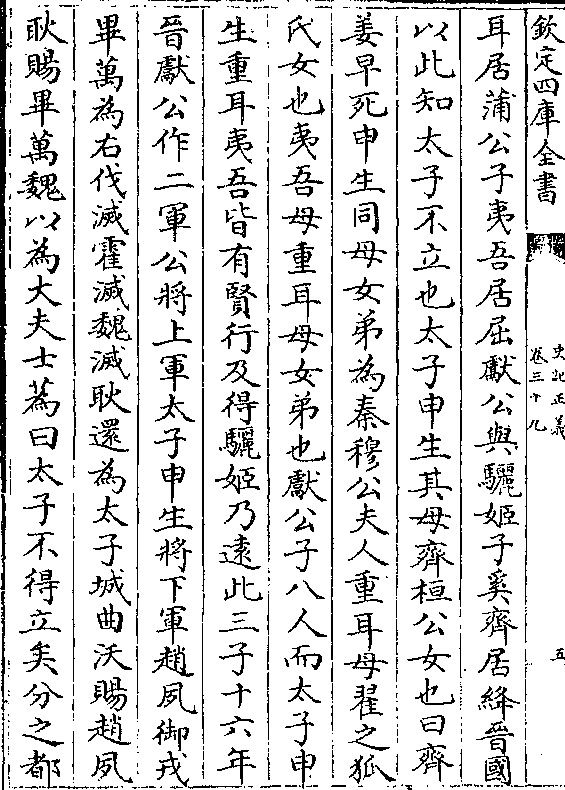 欽定四庫全書
史記正義
卷三十九
五
耳居蒲公子夷吾居屈獻公與驪姬子奚齊居絳晉國
以此知太子不立也太子申生其母齊桓公女也曰齊
姜早死申生同母女弟為秦穆公夫人重耳母翟之狐
氏女也夷吾母重耳母女弟也獻公子八人而太子申
生重耳夷吾皆有賢行及得驪姬乃遠此三子十六年
晉獻公作二軍公將上軍太子申生將下軍趙夙御戎
畢萬為右伐滅霍滅魏滅耿還為太子城曲沃賜趙夙
耿賜畢萬魏以為大夫士蔿曰太子不得立矣分之都